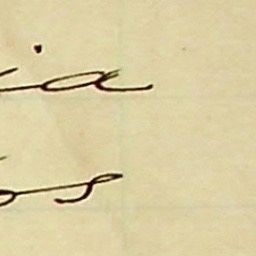 ia
os